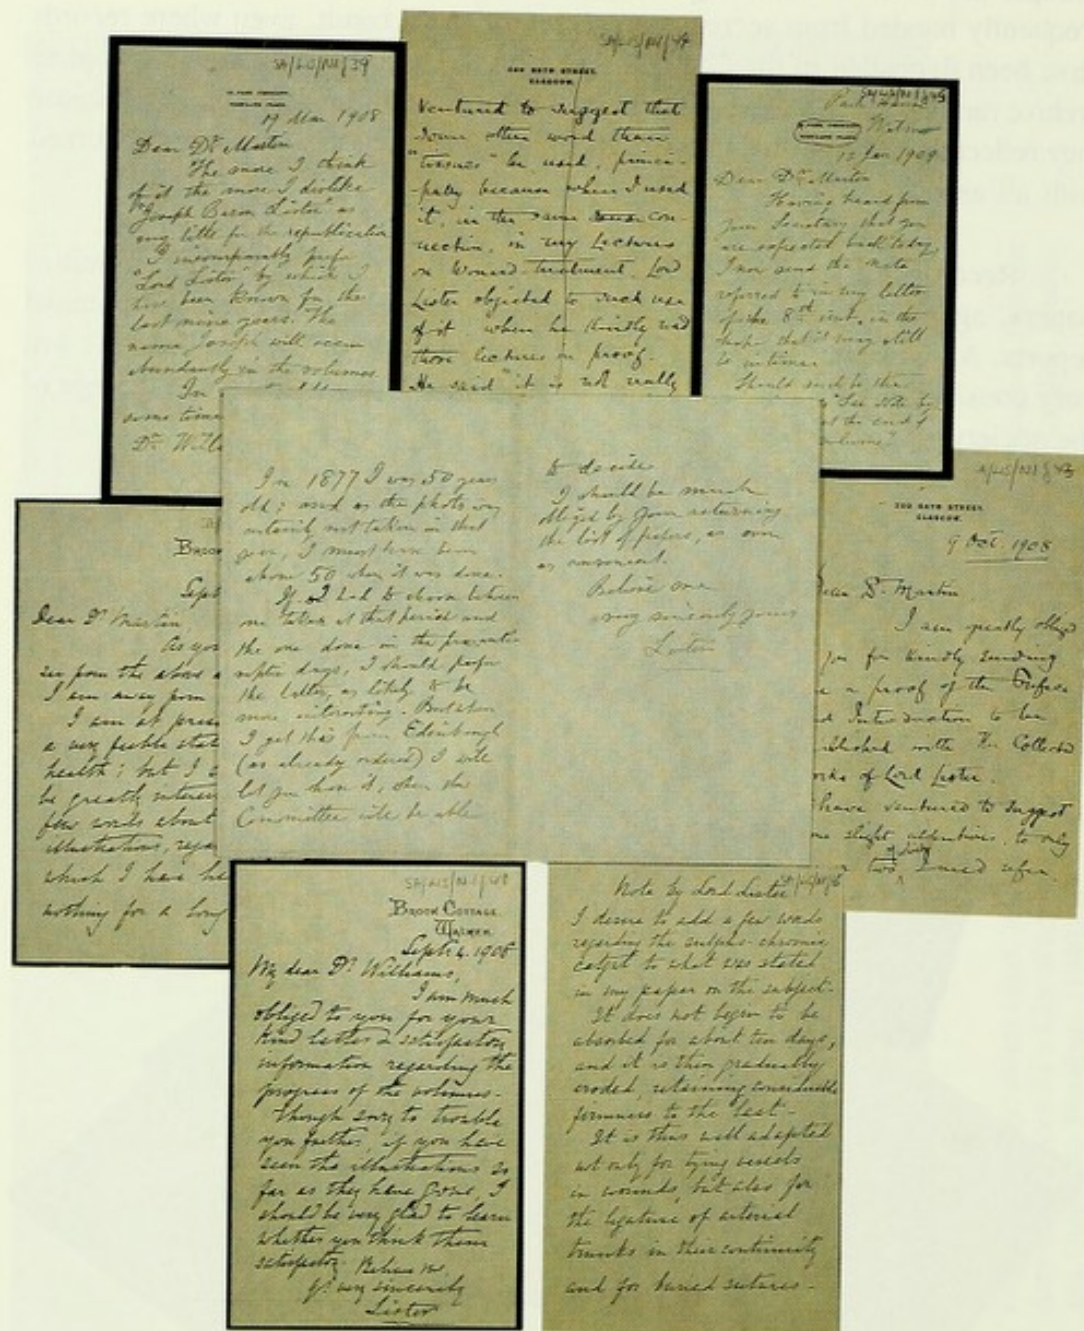 SA/LIS/N1/39
19 Mar 1908
Dear Dr. Martin
The more I think
of it the more I dislike
"Joseph Baron Lister" as
my title for the republication
I incomparably prefer
"Lord Lister" by which I
have been known for the
last nine years. The
name Joseph will occur
abundantly in the volumes.
In
some time
Dr. Will
200 BATH STREET,
GLASGOW.
Ventured to suggest that
some other word than
"tissues" be used, princi-
pally because when I used
it, in the same con-
nection, in my Lectures
on Wound-treatment, Lord
Lister objected to such use
of it when he kindly read
those lectures in proof.
He said "it is not really
12 Jan 1909
Dear Dr. Martin
Having heard from
your Secretary that you
are expected back today,
I now send the note
referred to in my letter
of the 8th inst, in the
hope that it may still
be in time.
Should
"See Note by
at the end of
volume"
In 1877 I was 50 years
old; and as the photo was
certainly not taken in that
year, I must have been
above 50 when it was done.
If I had to choose between
one taken at that period and
the one done in the pre-anti-
septic days, I should prefer
the latter, as likely to be
more interesting. But when
I get this from Edinburgh
(as already ordered) I will
let you have it, when the
Committee will be able
to decide
I should be much
obliged by your returning
the list of papers, as soon
as convenient.
Believe me
very sincerely yours
Lister
BROO
Sept
Dear Dr. Martin
As you
see from the above a
I am away from
I am at pres
a very feeble stat
health; but I
be greatly interes
few words about
illustrations, rega
which I have he
nothing for a long
200 BATH STREET,
GLASGOW.
9 Oct. 1908
Dear Dr. Martin,
I am greatly obliged
you for kindly sending
a proof of the Preface
Introduction to be
published with the Collected
works of Lord Lister.
have ventured to suggest
slight alterations, to only
two I need refer.
SA/LIS/N1/48
BROOK COTTAGE
WALMER.
Sept 4. 1908
My dear Dr. Williams,
I am much
obliged to you for your
kind letter & satisfactory
information regarding the
progress of the volumes.
Though sorry to trouble
you further, if you have
seen the illustrations so
far as they have gone, I
should be very glad to learn
whether you think them
satisfactory. Believe me
yrs very sincerely
Lister
Note by Lord Lister
I desire to add a few words
regarding the sulpho-chromic
catgut to what was stated
in my paper on the subject-
It does not begin to be
absorbed for about ten days,
and it is then gradually
eroded, retaining considerable
firmness to the last-
It is thus well adapted
not only for tying vessels
in wounds, but also for
the ligature of arterial
trunks in their continuity
and for buried sutures-